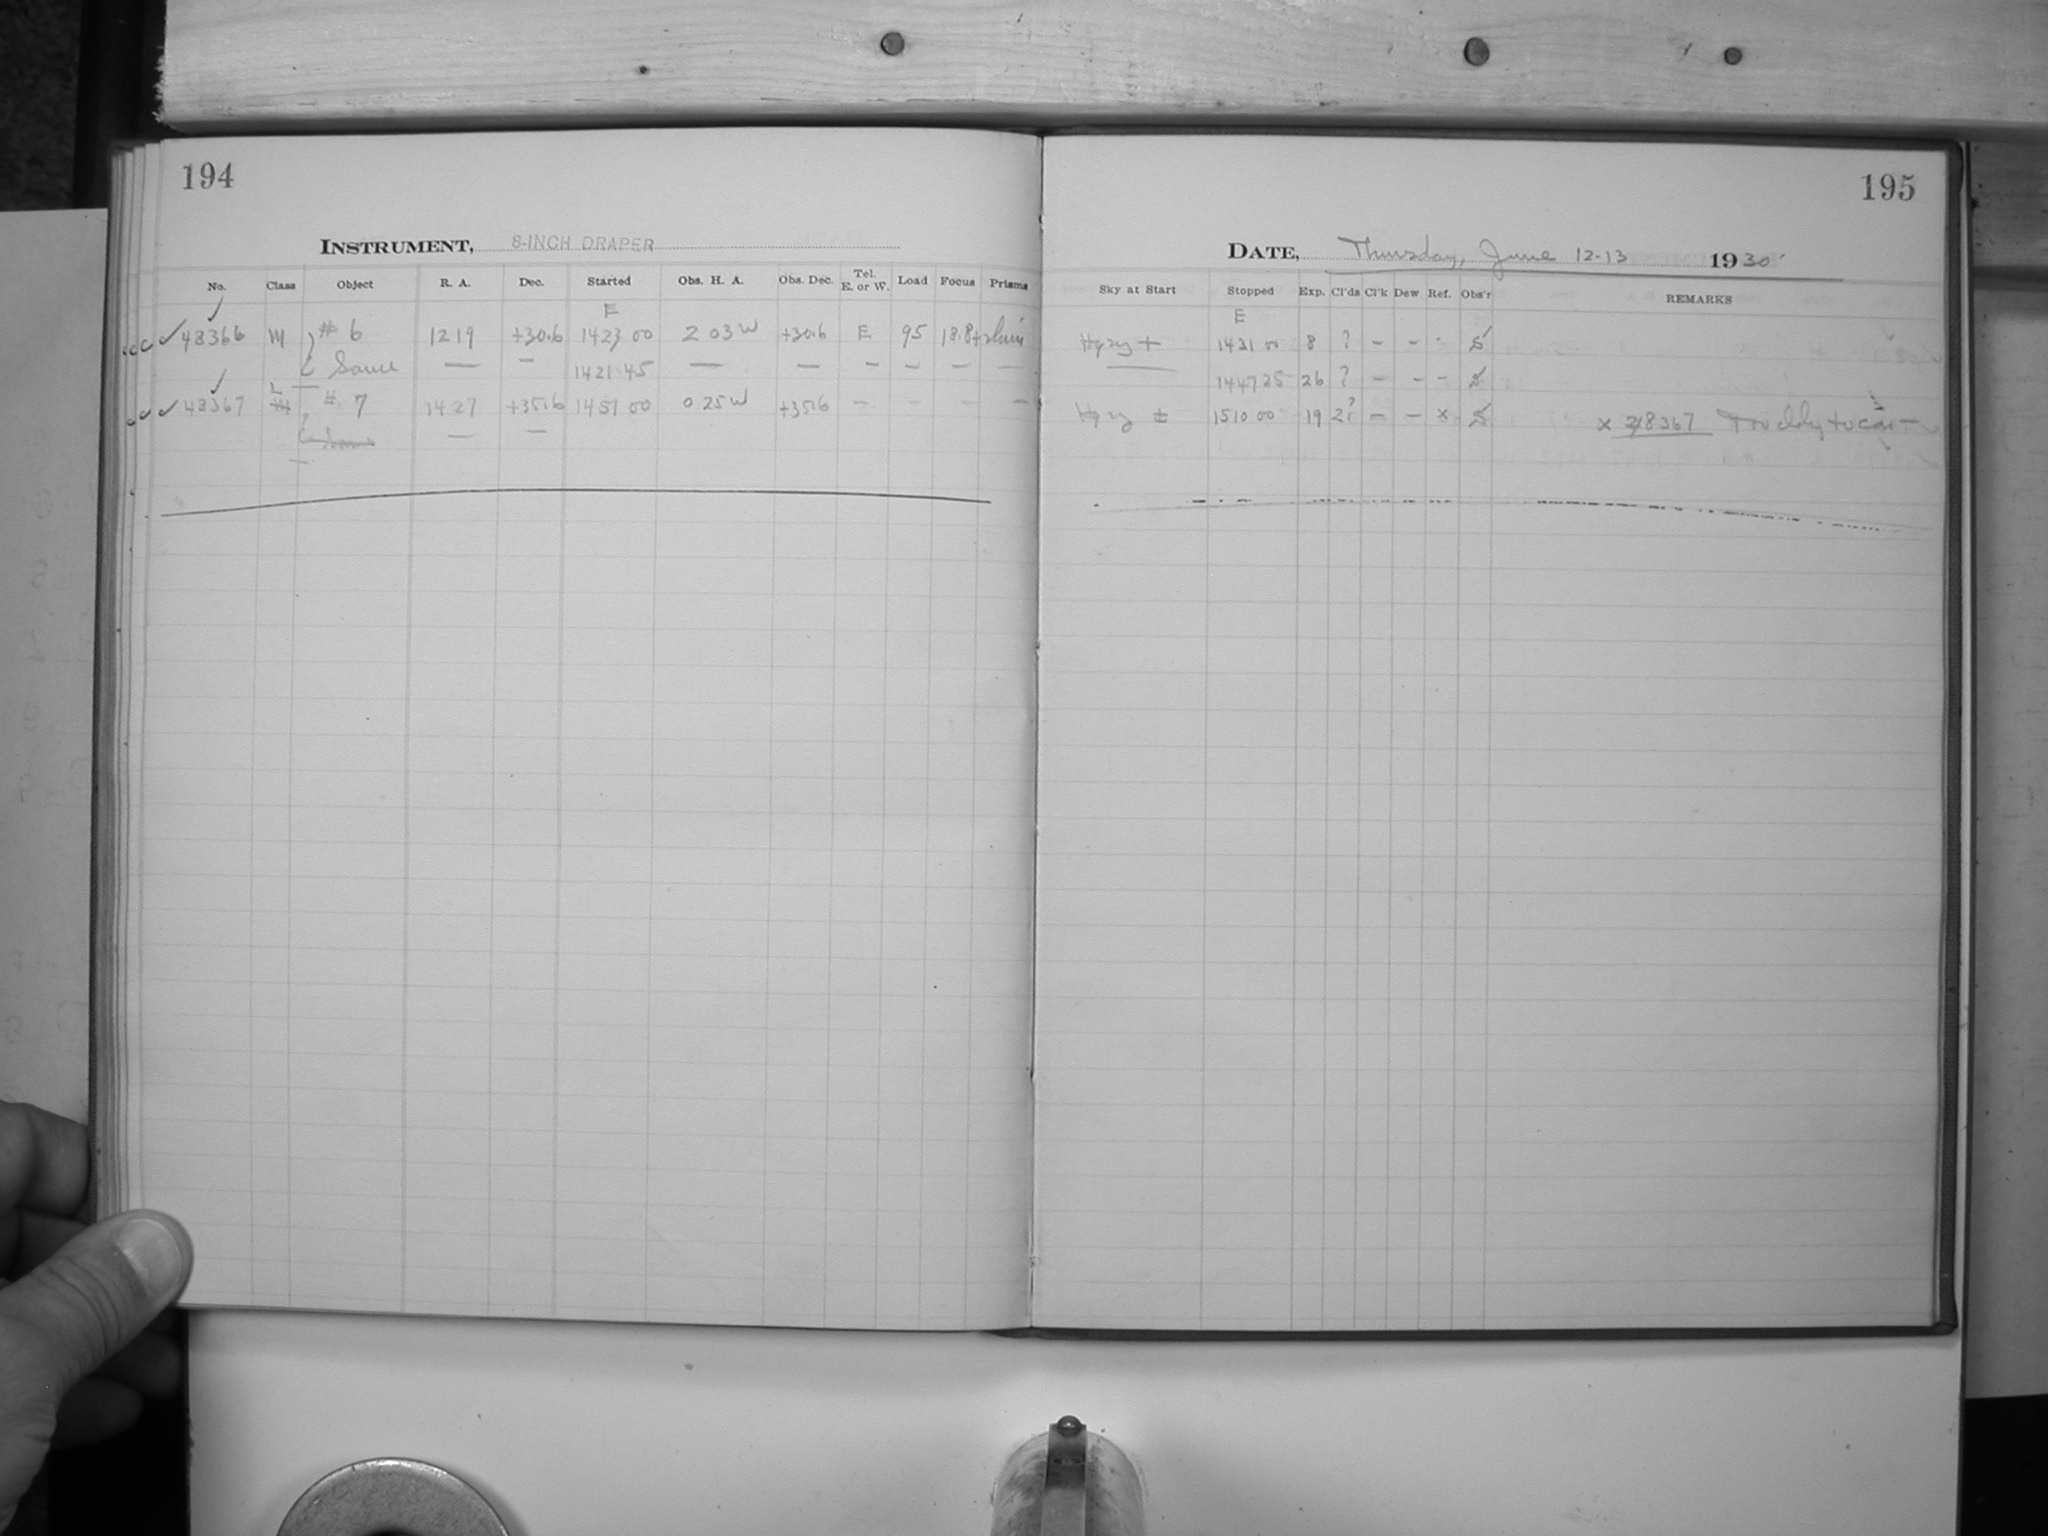 194
INSTRUMENT, 8-INCH DRAPER
No. Class Object R. A. Dec. Started Obs. H. A. Obs. Dec. Tel. E. or W. Load Focus Prisms
E
48366 M # 6 12 19 +30.6 14 23 00 2 03 W +30.6 E 95 18.8
Same — — 14 21 45 — — — — — —
48367 L # 7 14 27 +35.6 14 51 00 0 25 W +35.6 — — — —
— —
195
DATE, Thursday, June 12-13 1930
Sky at Start Stopped Exp. Cl'ds Cl'k Dew Ref. Obs'r REMARKS
E
Hazy + 14 31 00 8 ? – – -
— 14 47 25 26 ? – – –
Hazy ± 15 10 00 19 2? – – x x 48367